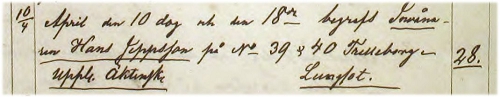 10/4 April den 10 dog och den 18de begrofs Invåna-
ren Hans Jeppsson på No 39 & 40 Trelleborg 28.
Uppl. Äktensk. Lungsot.